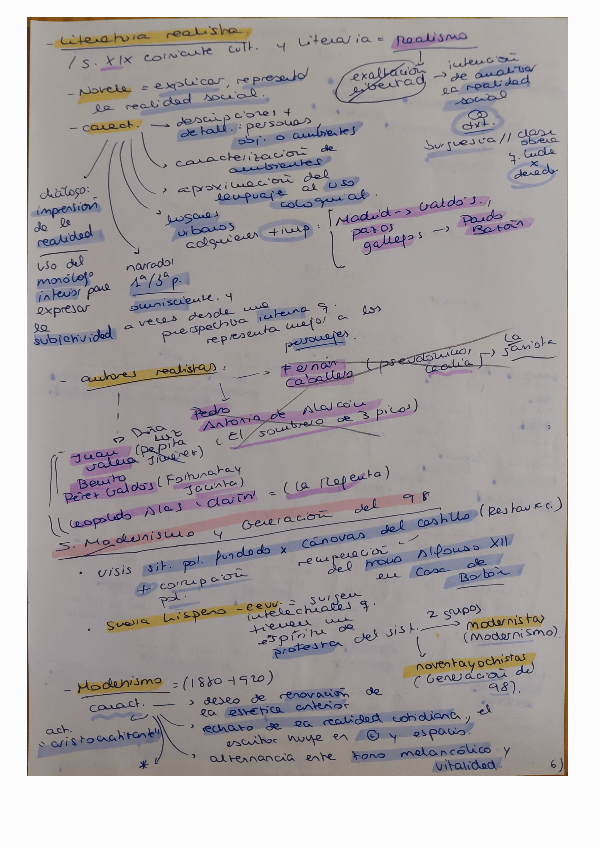 - Literatura realista,
/ S. XIX corriente cult. y literaria = Realismo
- Novela = explicar, represento
la realidad social.
exaltación
libertad
→ intención
de analizar
la realidad
social
dirt.
burguesía // clase
obrera
→ lucha
x
derech
- Caract. → descripciones +
detall: personas,
obj. o ambientes
caracterización de
ambientes
aproximación del
lenguaje al uso
coloquial.
lugares
urbanos
adquieren + imp.
Madrid → Galdós,
pazos
gallegos → Pardo
Bazán
diálogo:
impresión
de la
realidad
uso del
monólogo
interior para
expresar
la
subjetividad
narrador
1ª/3ª p.
omnisciente. y
a veces desde una
perspectiva interna q.
representa mejor a los
personajes.
- autores realistas,
→ Fernán
Caballero (pseudónimo,
Cecilia) → La
Gaviota
Pedro
Antonio de Alarcón
(El sombrero de 3 picos)
→ Doña
Luz
Juan (Pepita
Valera Jiménez)
Benito
Pérez Galdós (Fortunata y
Jacinta)
Leopoldo Alas "Clarín" = (La Regenta)
5. Modernismo y Generación del 98
• crisis sit. pol. fundado x Cánovas del Castillo (Restaurac.)
+ corrupción
pol.
recuperación
del trono Alfonso XII
en Casa de
Borbón
• Guerra hispano-eeuu. = surgen
intelectuales q.
tienen un
espíritu de
protesta del sist.
2 grupos
modernistas
(Modernismo)
noventayochistas
(Generación del
98).
- Modernismo = (1880 → 1920)
caract. → deseo de renovación de
la estética anterior
rechazo de la realidad cotidiana, el
escritor huye en y espacio.
act.
"aristocratizante"
*
alternancia entre tono melancólico y
vitalidad.
6)